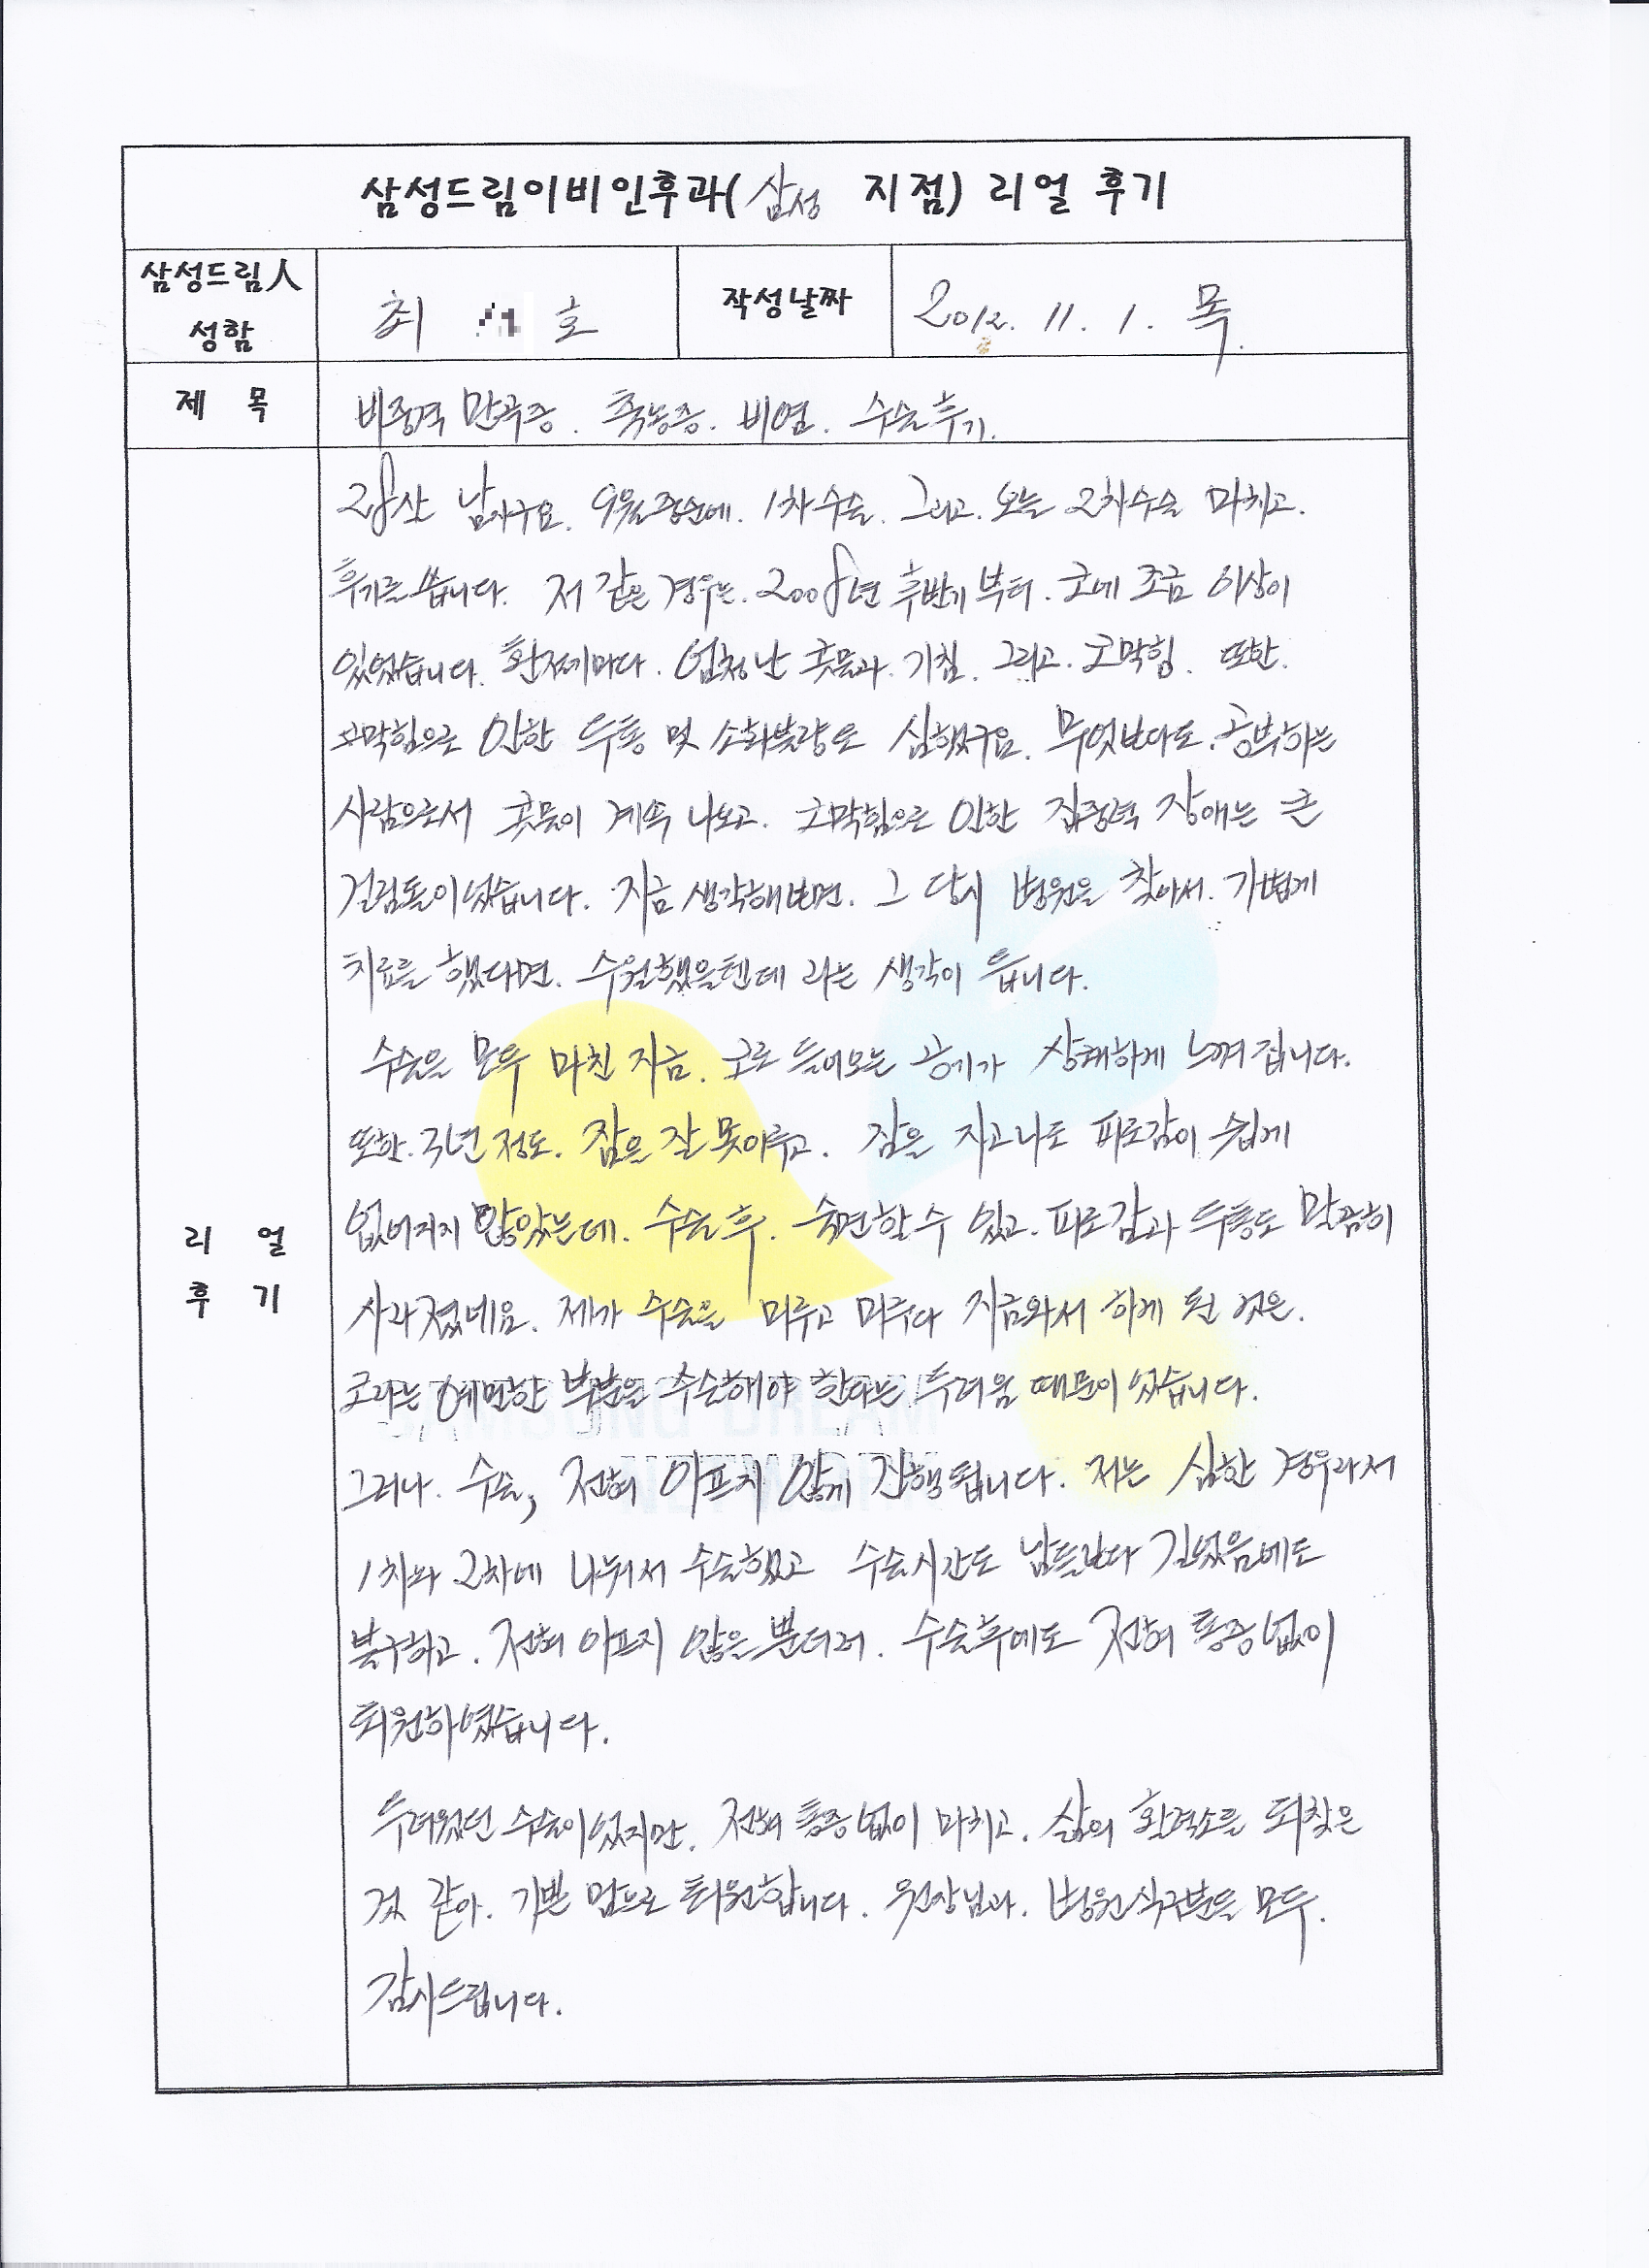 삼성드림이비인후과(삼성 지점) 리얼 후기
삼성드림人 성함
최 호
작성날짜
2012. 11. 1. 목.
제 목
비중격 만곡증. 축농증. 비염. 수술후기.
리 얼 후 기
28살 남자구요. 9월중순에. 1차수술. 그리고. 오늘 2차수술 마치고.
후기를 씁니다. 저 같은 경우는. 2008년 후반기 부터. 코에 조금 이상이
있었습니다. 환절기마다. 엄청난 콧물과. 기침. 그리고. 코막힘. 또한.
코막힘으로 인한 두통 및 소화불량도 심했구요. 무엇보다도. 공부하는
사람으로서 콧물이 계속 나오고. 코막힘으로 인한 집중력 장애는 큰
걸림돌이었습니다. 지금 생각해보면. 그 당시 병원을 찾아서. 가볍게
치료를 했다면. 수월했을텐데 라는 생각이 듭니다.
수술을 모두 마친 지금. 코로 들어오는 공기가 상쾌하게 느껴집니다.
또한. 작년 정도. 잠을 잘 못이루고. 잠을 자고나도 피로감이 쉽게
없어지지 않았는데. 수술 후. 숙면할 수 있고. 피로감과 두통도 말끔히
사라졌네요. 제가 수술을 미루고 미루다 지금와서 하게 된 것은.
코라는 예민한 부분을 수술해야 한다는 두려움 때문이었습니다.
그러나. 수술, 전혀 아프지 않게 진행됩니다. 저는 심한 경우라서
1차와 2차에 나눠서 수술했고 수술시간도 남들보다 길었음에도
불구하고. 전혀 아프지 않을 뿐더러. 수술후에도 전혀 통증없이
퇴원하였습니다.
두려웠던 수술이었지만. 전혀 통증없이 마치고. 삶의 활력소를 되찾은
것 같아. 기쁜 맘으로 퇴원합니다. 원장님과. 병원식구분들 모두.
감사드립니다.
SAMSUNG DREAM
NETWORK